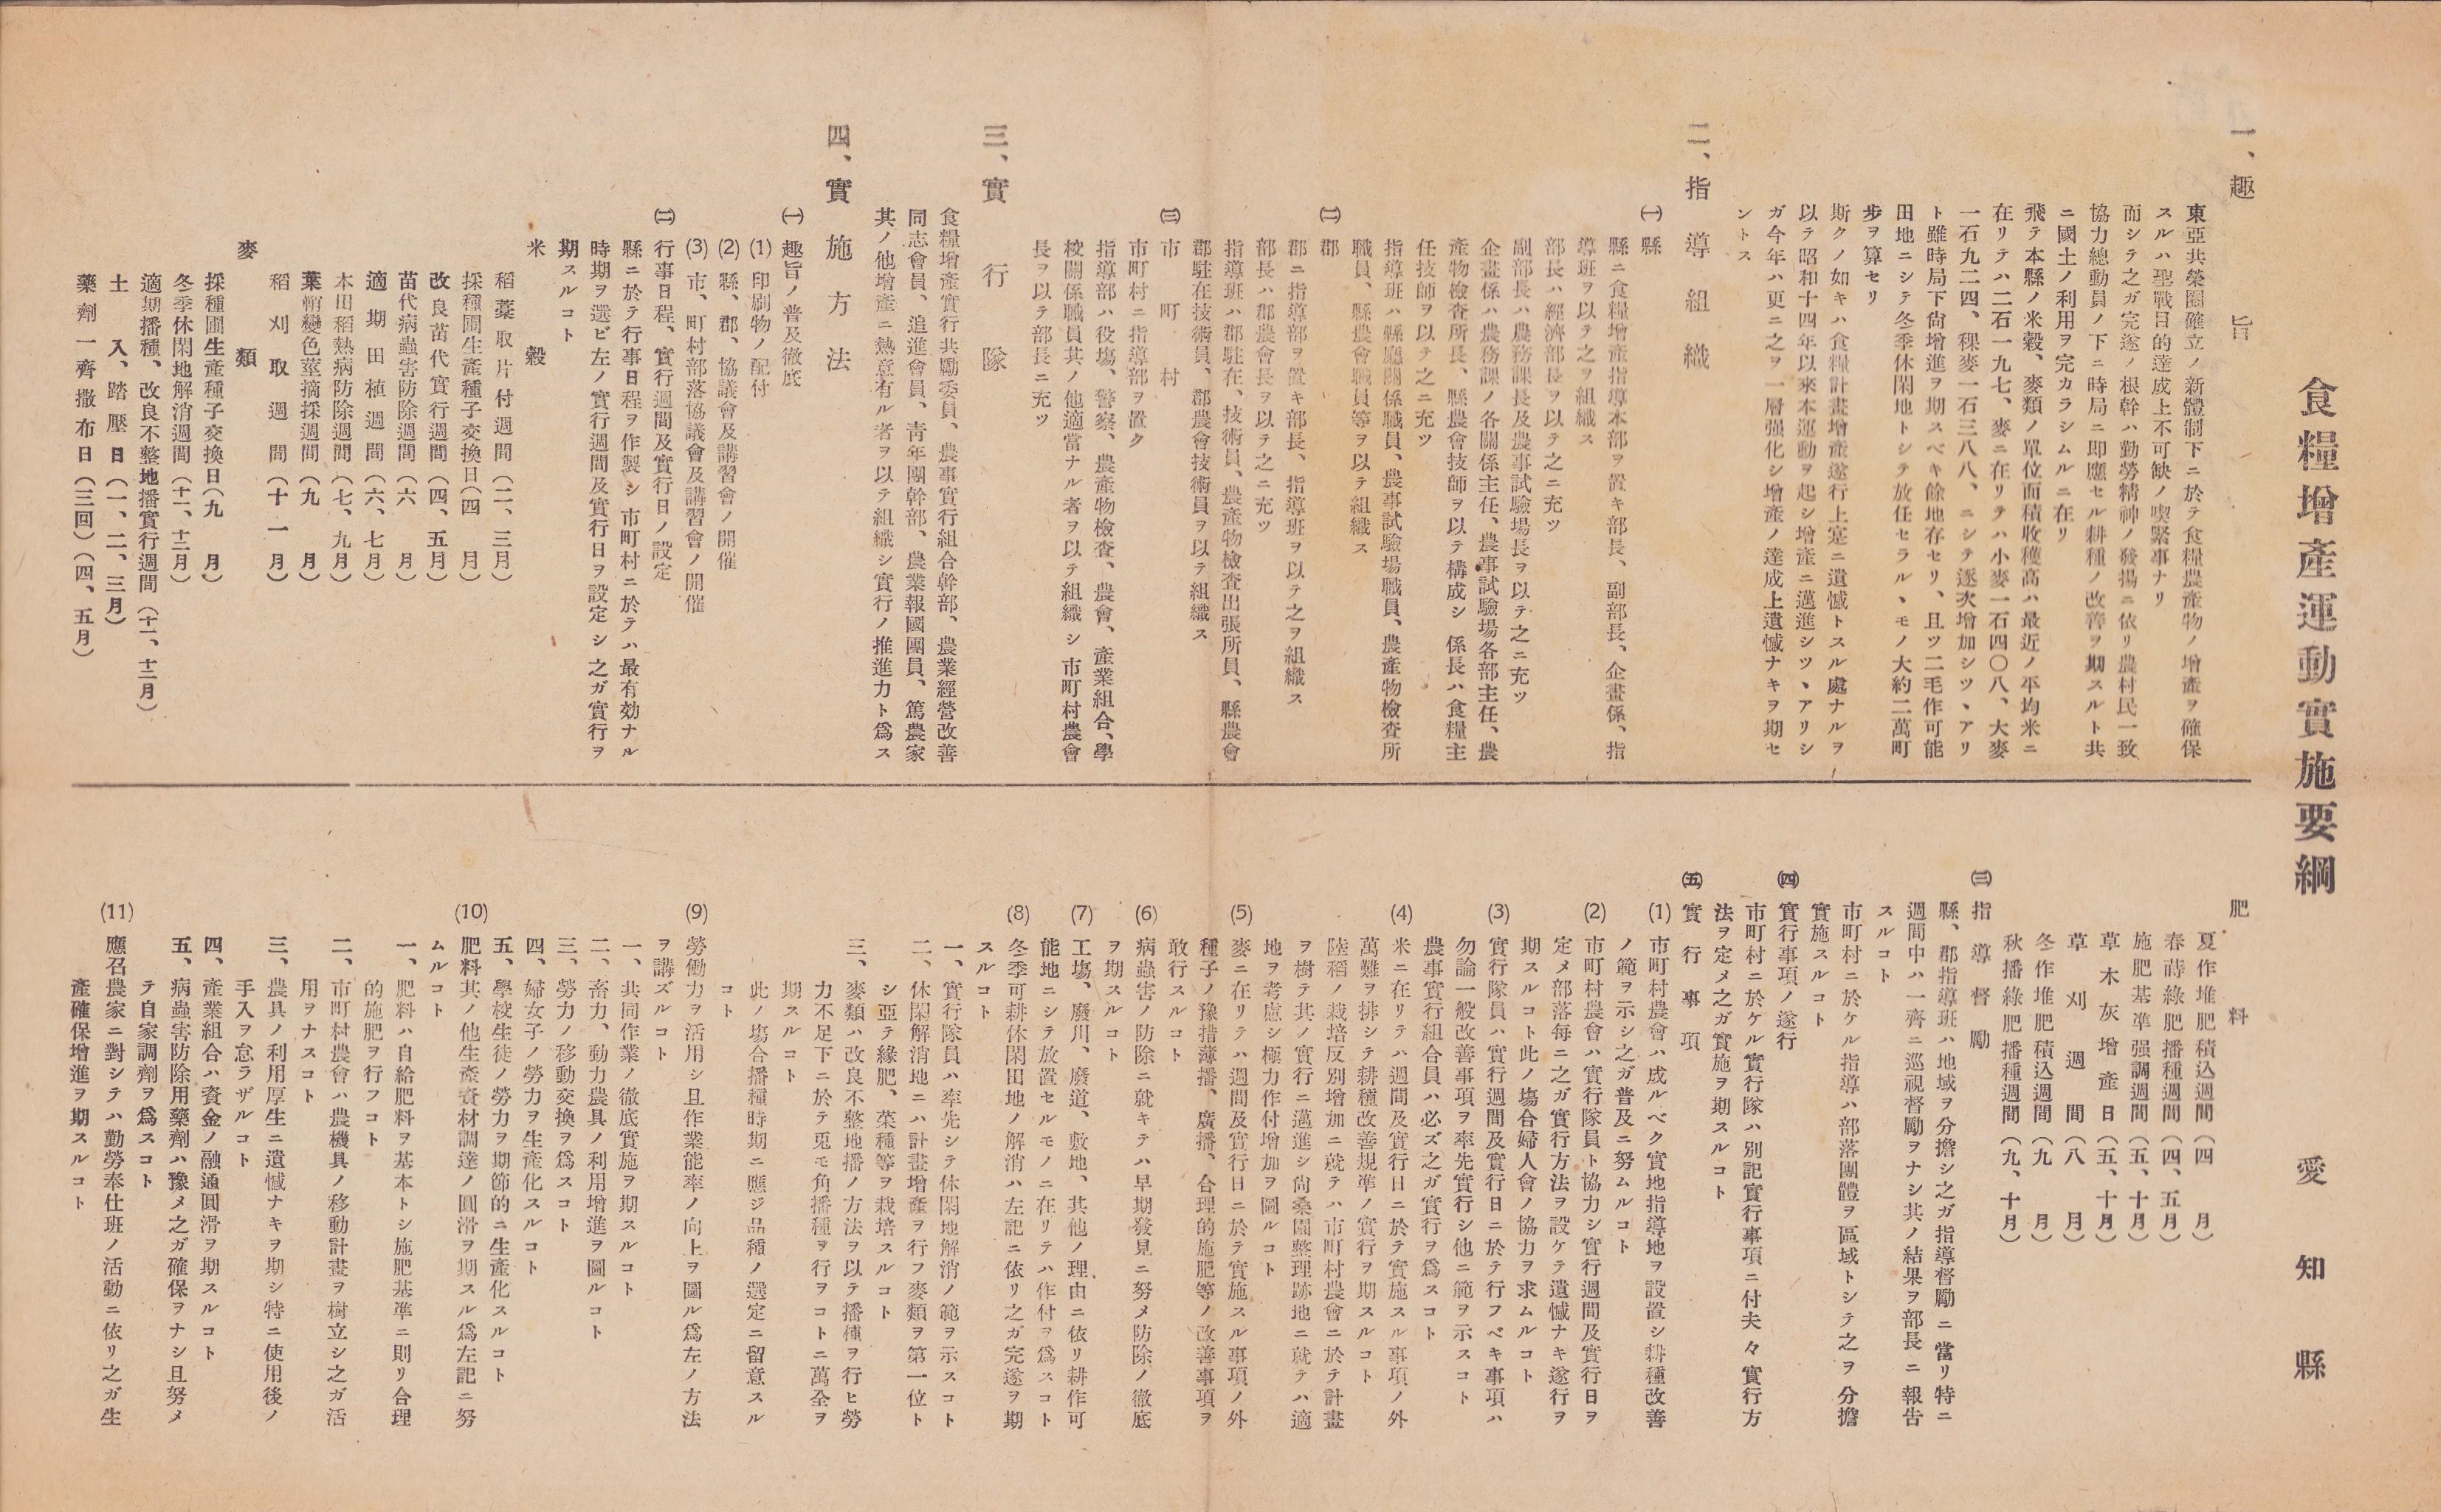 食糧增產運動實施要綱
愛知縣
一、趣旨
東亞共榮圈確立ノ新體制下ニ於テ食糧農產物ノ增產ヲ確保
スルハ聖戰目的達成上不可缺ノ喫緊事ナリ
而シテ之ガ完遂ノ根幹ハ勤勞精神ノ發揚ニ依リ農村民一致
協力總動員ノ下ニ時局ニ卽應セル耕種ノ改善ヲ期スルト共
ニ國土ノ利用ヲ完カラシムルニ在リ
飛テ本縣ノ米穀、麥類ノ單位面積收穫高ハ最近ノ平均米ニ
在リテハ二石一九七、麥ニ在リテハ小麥一石四〇八、大麥
一石九二四、稞麥一石三八八、ニシテ逐次增加シツヽアリ
ト雖時局下尙增進ヲ期スベキ餘地存セリ、且ツ二毛作可能
田地ニシテ冬季休閑地トシテ放任セラルヽモノ大約二萬町
步ヲ算セリ
斯クノ如キハ食糧計畫增產遂行上寔ニ遺憾トスル處ナルヲ
以テ昭和十四年以來本運動ヲ起シ增產ニ邁進シツヽアリシ
ガ今年ハ更ニ之ヲ一層强化シ增產ノ達成上遺憾ナキヲ期セ
ントス
二、指導組織
㈠縣
縣ニ食糧增產指導本部ヲ置キ部長、副部長、企畫係、指
導班ヲ以テ之ヲ組織ス
部長ハ經濟部長ヲ以テ之ニ充ツ
副部長ハ農務課長及農事試驗場長ヲ以テ之ニ充ツ
企畫係ハ農務課ノ各關係主任、農事試驗場各部主任、農
產物檢查所長、縣農會技師ヲ以テ構成シ係長ハ食糧主
任技師ヲ以テ之ニ充ツ
指導班ハ縣廳關係職員、農事試驗場職員、農產物檢查所
職員、縣農會職員等ヲ以テ組織ス
㈡郡
郡ニ指導部ヲ置キ部長、指導班ヲ以テ之ヲ組織ス
部長ハ郡農會長ヲ以テ之ニ充ツ
指導班ハ郡駐在、技術員、農產物檢查出張所員、縣農會
郡駐在技術員、郡農會技術員ヲ以テ組織ス
㈢市町村
市町村ニ指導部ヲ置ク
指導部ハ役場、警察、農產物檢查、農會、產業組合、學
校關係職員其ノ他適當ナル者ヲ以テ組織シ市町村農會
長ヲ以テ部長ニ充ツ
三、實行隊
食糧增產實行共勵委員、農事實行組合幹部、農業經營改善
同志會員、追進會員、靑年團幹部、農業報國團員、篤農家
其ノ他增產ニ熱意有ル者ヲ以テ組織シ實行ノ推進力ト爲ス
四、實施方法
㈠趣旨ノ普及徹底
(1)印刷物ノ配付
(2)縣、郡、協議會及講習會ノ開催
(3)市、町村部落協議會及講習會ノ開催
㈡行事日程、實行週間及實行日ノ設定
縣ニ於テ行事日程ヲ作製シ市町村ニ於テハ最有効ナル
時期ヲ選ビ左ノ實行週間及實行日ヲ設定シ之ガ實行ヲ
期スルコト
米穀
稻藁取片付週間(二、三月)
採種圃生產種子交換日(四月)
改良苗代實行週間(四、五月)
苗代病蟲害防除週間(六月)
適期田植週間(六、七月)
本田稻熱病防除週間(七、九月)
葉鞘變色莖摘採週間(九月)
稻刈取週間(十一月)
麥類
採種圃生產種子交換日(九月)
冬季休閑地解消週間(十一、十二月)
適期播種、改良不整地播實行週間(十一、十二月)
土入、踏壓日(一、二、三月)
藥劑一齊撒布日(三回)(四、五月)
肥料
夏作堆肥積込週間(四月)
春蒔綠肥播種週間(四、五月)
施肥基準强調週間(五、十月)
草木灰增產日(五、十月)
草刈週間(八月)
冬作堆肥積込週間(九月)
秋播綠肥播種週間(九、十月)
㈢指導督勵
縣、郡指導班ハ地域ヲ分擔シ之ガ指導督勵ニ當リ特ニ
週間中ハ一齊ニ巡視督勵ヲナシ其ノ結果ヲ部長ニ報告
スルコト
市町村ニ於ケル指導ハ部落團體ヲ區域トシテ之ヲ分擔
實施スルコト
㈣實行事項ノ遂行
市町村ニ於ケル實行隊ハ別記實行事項ニ付夫々實行方
法ヲ定メ之ガ實施ヲ期スルコト
㈤實行事項
(1)市町村農會ハ成ルベク實地指導地ヲ設置シ耕種改善
ノ範ヲ示シ之ガ普及ニ努ムルコト
(2)市町村農會ハ實行隊員ト協力シ實行週間及實行日ヲ
定メ部落每ニ之ガ實行方法ヲ設ケテ遺憾ナキ遂行ヲ
期スルコト此ノ場合婦人會ノ協力ヲ求ムルコト
(3)實行隊員ハ實行週間及實行日ニ於テ行フベキ事項ハ
勿論一般改善事項ヲ率先實行シ他ニ範ヲ示スコト
農事實行組合員ハ必ズ之ガ實行ヲ爲スコト
(4)米ニ在リテハ週間及實行日ニ於テ實施スル事項ノ外
萬難ヲ排シテ耕種改善規準ノ實行ヲ期スルコト
陸稻ノ栽培反別增加ニ就テハ市町村農會ニ於テ計畫
ヲ樹テ其ノ實行ニ邁進シ尙桑園整理跡地ニ就テハ適
地ヲ考慮シ極力作付增加ヲ圖ルコト
(5)麥ニ在リテハ週間及實行日ニ於テ實施スル事項ノ外
種子ノ豫措薄播、廣播、合理的施肥等ノ改善事項ヲ
敢行スルコト
(6)病蟲害ノ防除ニ就キテハ早期發見ニ努メ防除ノ徹底
ヲ期スルコト
(7)工場、廢川、廢道、敷地、其他ノ理由ニ依リ耕作可
能地ニシテ放置セルモノニ在リテハ作付ヲ爲スコト
(8)冬季可耕休閑田地ノ解消ハ左記ニ依リ之ガ完遂ヲ期
スルコト
一、實行隊員ハ率先シテ休閑地解消ノ範ヲ示スコト
二、休閑解消地ニハ計畫增產ヲ行フ麥類ヲ第一位ト
シ亞テ緣肥、菜種等ヲ栽培スルコト
三、麥類ハ改良不整地播ノ方法ヲ以テ播種ヲ行ヒ勞
力不足下ニ於テ兎モ角播種ヲ行ヲコトニ萬全ヲ
期スルコト
此ノ場合播種時期ニ應ジ品種ノ選定ニ留意スル
コト
(9)勞働力ヲ活用シ且作業能率ノ向上ヲ圖ル爲左ノ方法
ヲ講ズルコト
一、共同作業ノ徹底實施ヲ期スルコト
二、畜力、動力農具ノ利用增進ヲ圖ルコト
三、勞力ノ移動交換ヲ爲スコト
四、婦女子ノ勞力ヲ生產化スルコト
五、學校生徒ノ勞力ヲ期節的ニ生產化スルコト
(10)肥料其ノ他生產資材調達ノ圓滑ヲ期スル爲左記ニ努
ムルコト
一、肥料ハ自給肥料ヲ基本トシ施肥基準ニ則リ合理
的施肥ヲ行フコト
二、市町村農會ハ農機具ノ移動計畫ヲ樹立シ之ガ活
用ヲナスコト
三、農具ノ利用厚生ニ遺憾ナキヲ期シ特ニ使用後ノ
手入ヲ怠ラザルコト
四、產業組合ハ資金ノ融通圓滑ヲ期スルコト
五、病蟲害防除用藥劑ハ豫メ之ガ確保ヲナシ且努メ
テ自家調劑ヲ爲スコト
(11)應召農家ニ對シテハ勤勞奉仕班ノ活動ニ依リ之ガ生
產確保增進ヲ期スルコト